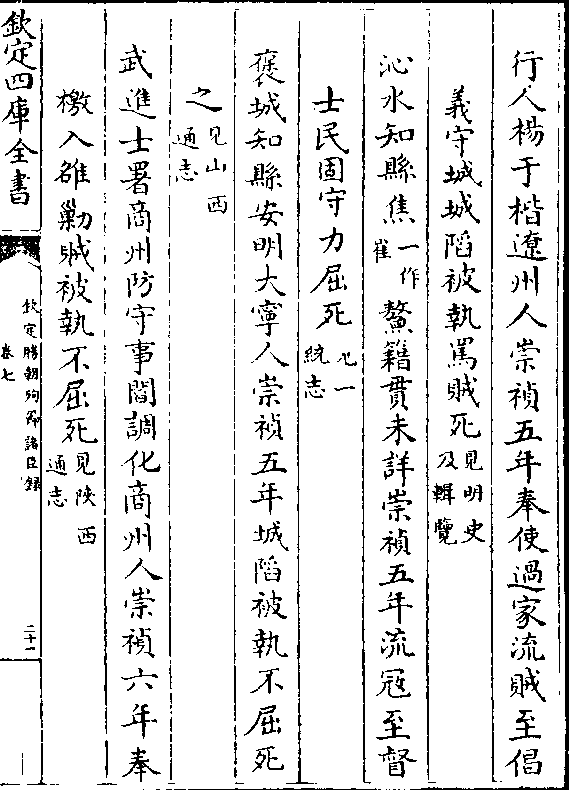 行人楊于楷遼州人崇禎五年奉使過家流賊至倡
義守城城陷被執罵賊死見明史及輯覽
沁水知縣焦一作崔鰲籍貫未詳崇禎五年流冦至督
士民固守力屈死見一統志
褒城知縣安明大寧人崇禎五年城陷被執不屈死
之見山西通志
武進士署商州防守事閻調化商州人崇禎六年奉
檄入雒勦賊被執不屈死見陜西通志
欽定四庫全書
欽定勝朝殉節諸臣録
卷七
二十一